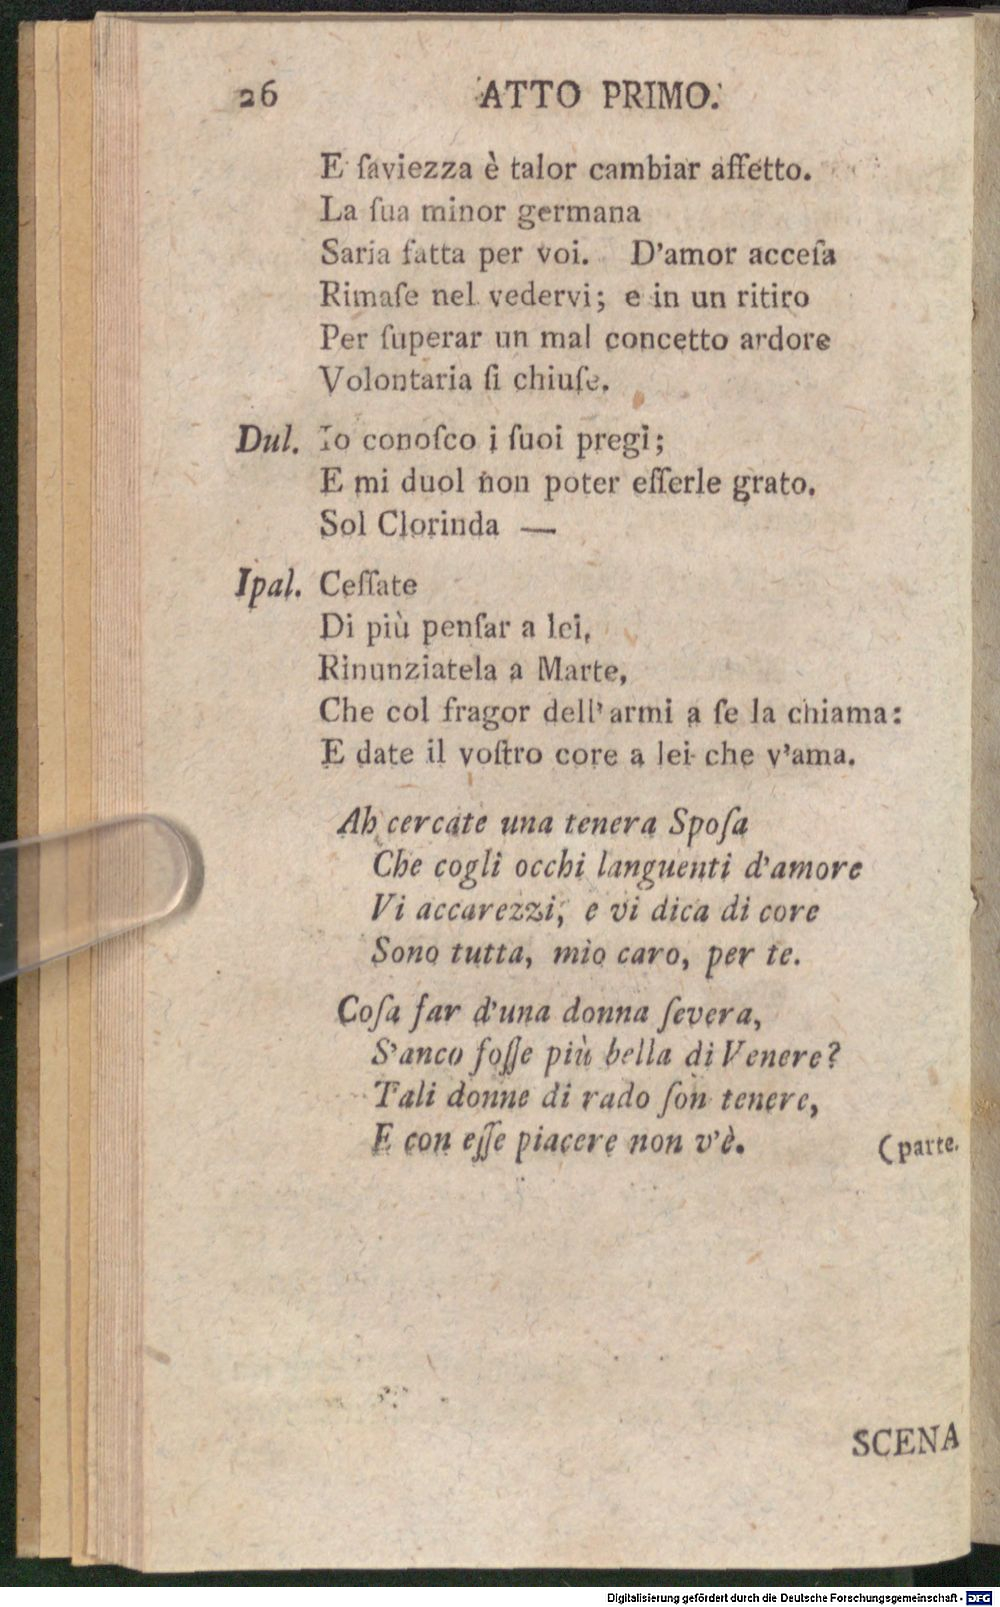 26 ATTO PRIMO.
E ſaviezza è talor cambiar affetto.
La ſua minor germana
Saria fatta per voi. D'amor acceſa
Rimaſe nel vedervi; e in un ritiro
Per ſuperar un mal concetto ardore
Volontaria ſi chiuſe.
Dul. Io conoſco i ſuoi pregi;
E mi duol non poter eſſerle grato.
Sol Clorinda —
Ipal. Ceſſate
Di più penſar a lei,
Rinunziatela a Marte,
Che col fragor dell'armi a ſe la chiama:
E date il voſtro core a lei che v'ama.
Ah cercate una tenera Spoſa
Che cogli occhi languenti d'amore
Vi accarezzi, e vi dica di core
Sono tutta, mio caro, per te.
Coſa far d'una donna ſevera,
S'anco foſſe più bella di Venere?
Tali donne di rado ſon tenere,
E con eſſe piacere non v'è. (parte.
SCENA
Digitalisierung gefördert durch die Deutsche Forschungsgemeinschaft - DFG